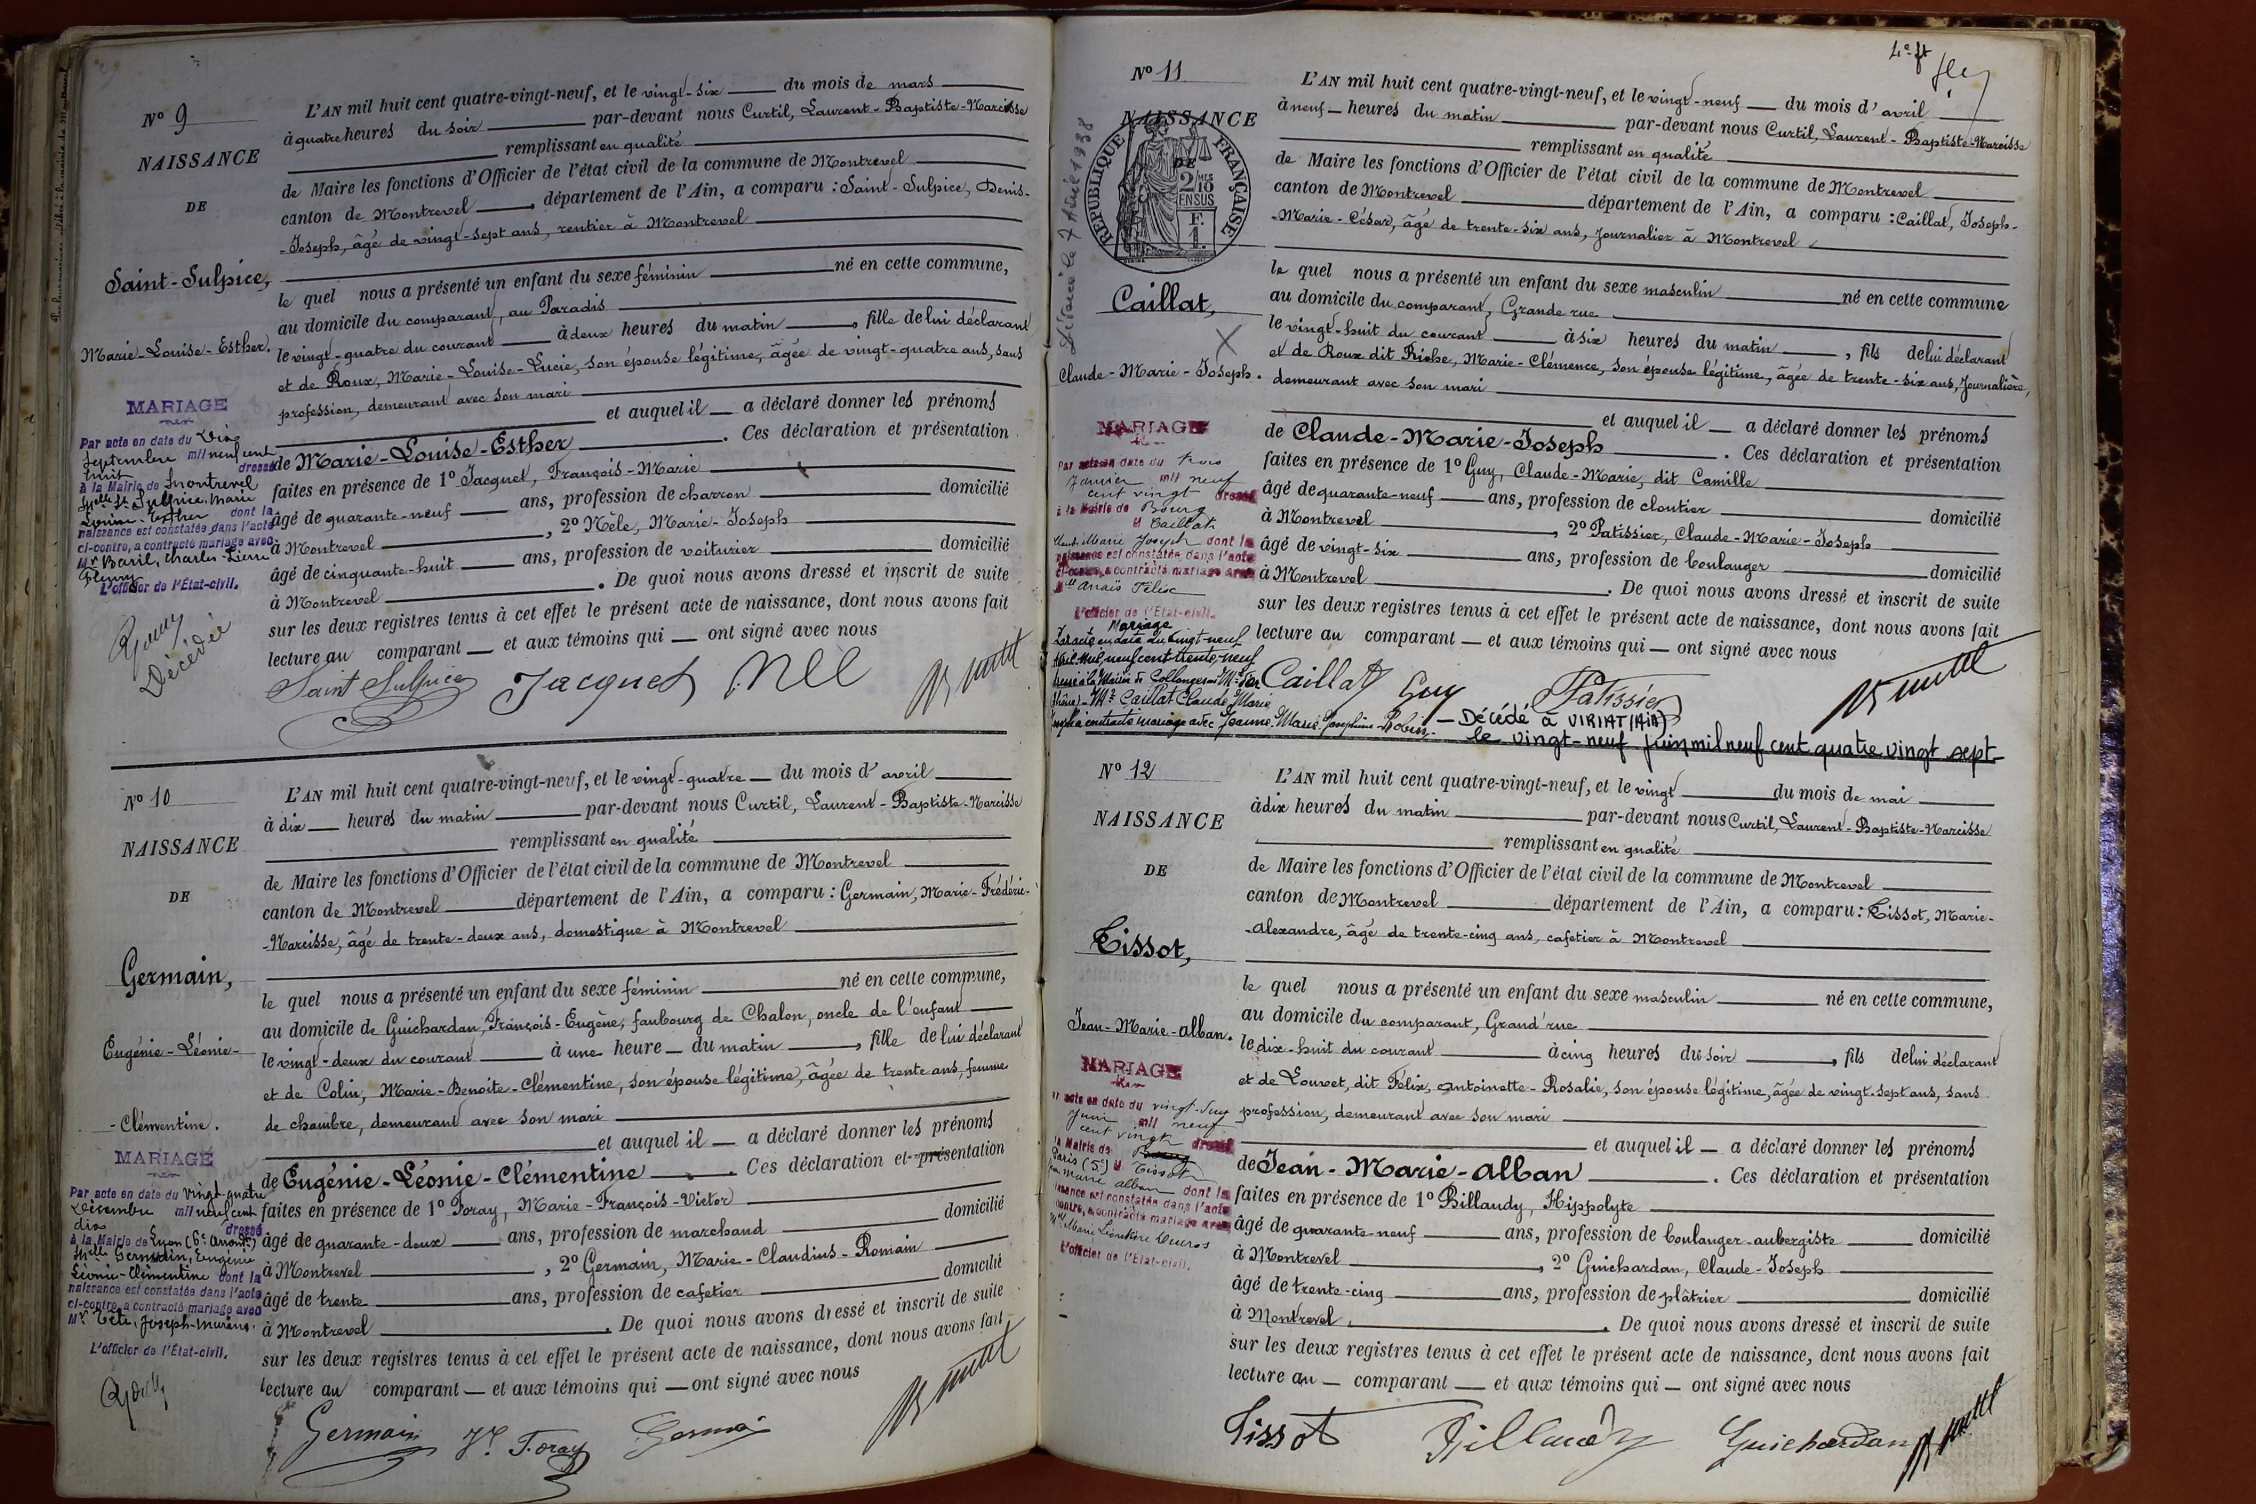 Nº 9
NAISSANCE
DE
Saint-Sulpice,
Marie-Louise-Esther.
MARIAGE
Par acte en date du Dix
Septembre mil neuf cent
huit dressé
à la Mairie de Montrevel
Melle St Sulpice, Marie
Louise-Esther dont la
naissance est constatée dans l'acte
ci-contre, a contracté mariage avec
Mr Baril, Charles-Pierre
Fleury
L'officier de l'État-civil.
Décédée
L'AN mil huit cent quatre-vingt-neuf, et le vingt-six du mois de mars
à quatre heures du soir par-devant nous Curtil, Laurent-Baptiste-Narcisse
remplissant en qualité
de Maire les fonctions d'Officier de l'état civil de la commune de Montrevel
canton de Montrevel, département de l'Ain, a comparu : Saint-Sulpice, Denis-
-Joseph, âgé de vingt-sept ans, rentier à Montrevel
le quel nous a présenté un enfant du sexe féminin né en cette commune,
au domicile du comparant, au Paradis
le vingt-quatre du courant à deux heures du matin, fille de lui déclarant
et de Roux, Marie-Louise-Lucie, son épouse légitime, âgée de vingt-quatre ans, sans
profession, demeurant avec son mari
et auquel il a déclaré donner les prénoms
de Marie-Louise-Esther. Ces déclaration et présentation
faites en présence de 1º Jacquet, François-Marie
âgé de quarante-neuf ans, profession de charron domicilié
à Montrevel, 2º Nèle, Marie-Joseph
âgé de cinquante-huit ans, profession de voiturier domicilié
à Montrevel. De quoi nous avons dressé et inscrit de suite
sur les deux registres tenus à cet effet le présent acte de naissance, dont nous avons fait
lecture au comparant et aux témoins qui ont signé avec nous
Saint Sulpice Jacquet
Nº 10
NAISSANCE
DE
Germain,
Eugénie-Léonie-
-Clémentine.
MARIAGE
Par acte en date du vingt-quatre
Décembre mil neuf cent
dix dressé
à la Mairie de Lyon (6e arront)
Melle Germain, Eugénie
Léonie-Clémentine dont la
naissance est constatée dans l'acte
ci-contre, a contracté mariage avec
L'officier de l'État-civil.
L'AN mil huit cent quatre-vingt-neuf, et le vingt-quatre du mois d'avril
à dix heures du matin par-devant nous Curtil, Laurent-Baptiste-Narcisse
remplissant en qualité
de Maire les fonctions d'Officier de l'état civil de la commune de Montrevel
canton de Montrevel département de l'Ain, a comparu : Germain, Marie-Frédéric-
-Narcisse, âgé de trente-deux ans, domestique à Montrevel
le quel nous a présenté un enfant du sexe féminin né en cette commune,
au domicile de Guichardan, François-Eugène, faubourg de Chalon, oncle de l'enfant
le vingt-deux du courant à une heure du matin, fille de lui déclarant
et de Colin, Marie-Benoite-Clémentine, son épouse légitime, âgée de trente ans, femme
de chambre, demeurant avec son mari
et auquel il a déclaré donner les prénoms
de Eugénie-Léonie-Clémentine. Ces déclaration et présentation
faites en présence de 1º Foray, Marie-François-Victor
âgé de quarante-deux ans, profession de marchand domicilié
à Montrevel, 2º Germain, Marie-Claudius-Romain
âgé de trente ans, profession de cafetier domicilié
à Montrevel. De quoi nous avons dressé et inscrit de suite
sur les deux registres tenus à cet effet le présent acte de naissance, dont nous avons fait
lecture au comparant et aux témoins qui ont signé avec nous
Germain Foray Germain
Nº 11
NAISSANCE
DE
RÉPUBLIQUE FRANÇAISE
Caillat,
Claude-Marie-Joseph.
MARIAGE
Par acte en date du trois
Janvier mil neuf
cent vingt dressé
à la Mairie de Bourg
M Caillat
Claude Marie Joseph dont la
naissance est constatée dans l'acte
ci-contre, a contracté mariage avec
Anaïs Félise
L'officier de l'État-civil.
Mariage
Par acte en date du vingt-neuf
Avril mil neuf cent trente-neuf
dressé à la Mairie de Collonges au Mt d'or
(Rhône) - Mr Caillat Claude Marie
Joseph a contracté mariage avec Jeanne Marie Josephine Robin.
— Décédé à VIRIAT (Ain)
le vingt-neuf juin mil neuf cent quatre vingt sept
L'AN mil huit cent quatre-vingt-neuf, et le vingt-neuf du mois d'avril
à neuf heures du matin par-devant nous Curtil, Laurent-Baptiste-Narcisse
remplissant en qualité
de Maire les fonctions d'Officier de l'état civil de la commune de Montrevel
canton de Montrevel département de l'Ain, a comparu : Caillat, Joseph-
-Marie-César, âgé de trente-six ans, journalier à Montrevel
le quel nous a présenté un enfant du sexe masculin né en cette commune
au domicile du comparant, Grande rue
le vingt-huit du courant à six heures du matin, fils de lui déclarant
et de Roux dit Riche, Marie-Clémence, son épouse légitime, âgée de trente-six ans, journalière,
demeurant avec son mari
et auquel il a déclaré donner les prénoms
de Claude-Marie-Joseph. Ces déclaration et présentation
faites en présence de 1º Guy, Claude-Marie, dit Camille
âgé de quarante-neuf ans, profession de cloutier domicilié
à Montrevel, 2º Patissier, Claude-Marie-Joseph
âgé de vingt-six ans, profession de boulanger domicilié
à Montrevel. De quoi nous avons dressé et inscrit de suite
sur les deux registres tenus à cet effet le présent acte de naissance, dont nous avons fait
lecture au comparant et aux témoins qui ont signé avec nous
Caillat Guy Patissier
Nº 12
NAISSANCE
DE
Tissot,
Jean-Marie-Alban.
MARIAGE
acte en date du vingt-deux
Juin mil neuf
cent vingt dressé
la Mairie de Bourg
Paris (5e) M Tissot
Jean Marie Alban dont la
naissance est constatée dans l'acte
contre, a contracté mariage avec
L'officier de l'État-civil.
L'AN mil huit cent quatre-vingt-neuf, et le vingt du mois de mai
à dix heures du matin par-devant nous Curtil, Laurent-Baptiste-Narcisse
remplissant en qualité
de Maire les fonctions d'Officier de l'état civil de la commune de Montrevel
canton de Montrevel département de l'Ain, a comparu : Tissot, Marie-
-Alexandre, âgé de trente-cinq ans, cafetier à Montrevel
le quel nous a présenté un enfant du sexe masculin né en cette commune,
au domicile du comparant, Grand'rue
le dix-huit du courant à cinq heures du soir, fils de lui déclarant
et de Louvet, dit Félix, Antoinette-Rosalie, son épouse légitime, âgée de vingt-sept ans, sans
profession, demeurant avec son mari
et auquel il a déclaré donner les prénoms
de Jean-Marie-Alban. Ces déclaration et présentation
faites en présence de 1º Billaudy, Hippolyte
âgé de quarante-neuf ans, profession de boulanger-aubergiste domicilié
à Montrevel, 2º Guichardan, Claude-Joseph
âgé de trente-cinq ans, profession de plâtrier domicilié
à Montrevel. De quoi nous avons dressé et inscrit de suite
sur les deux registres tenus à cet effet le présent acte de naissance, dont nous avons fait
lecture au comparant et aux témoins qui ont signé avec nous
Tissot Billaudy Guichardan